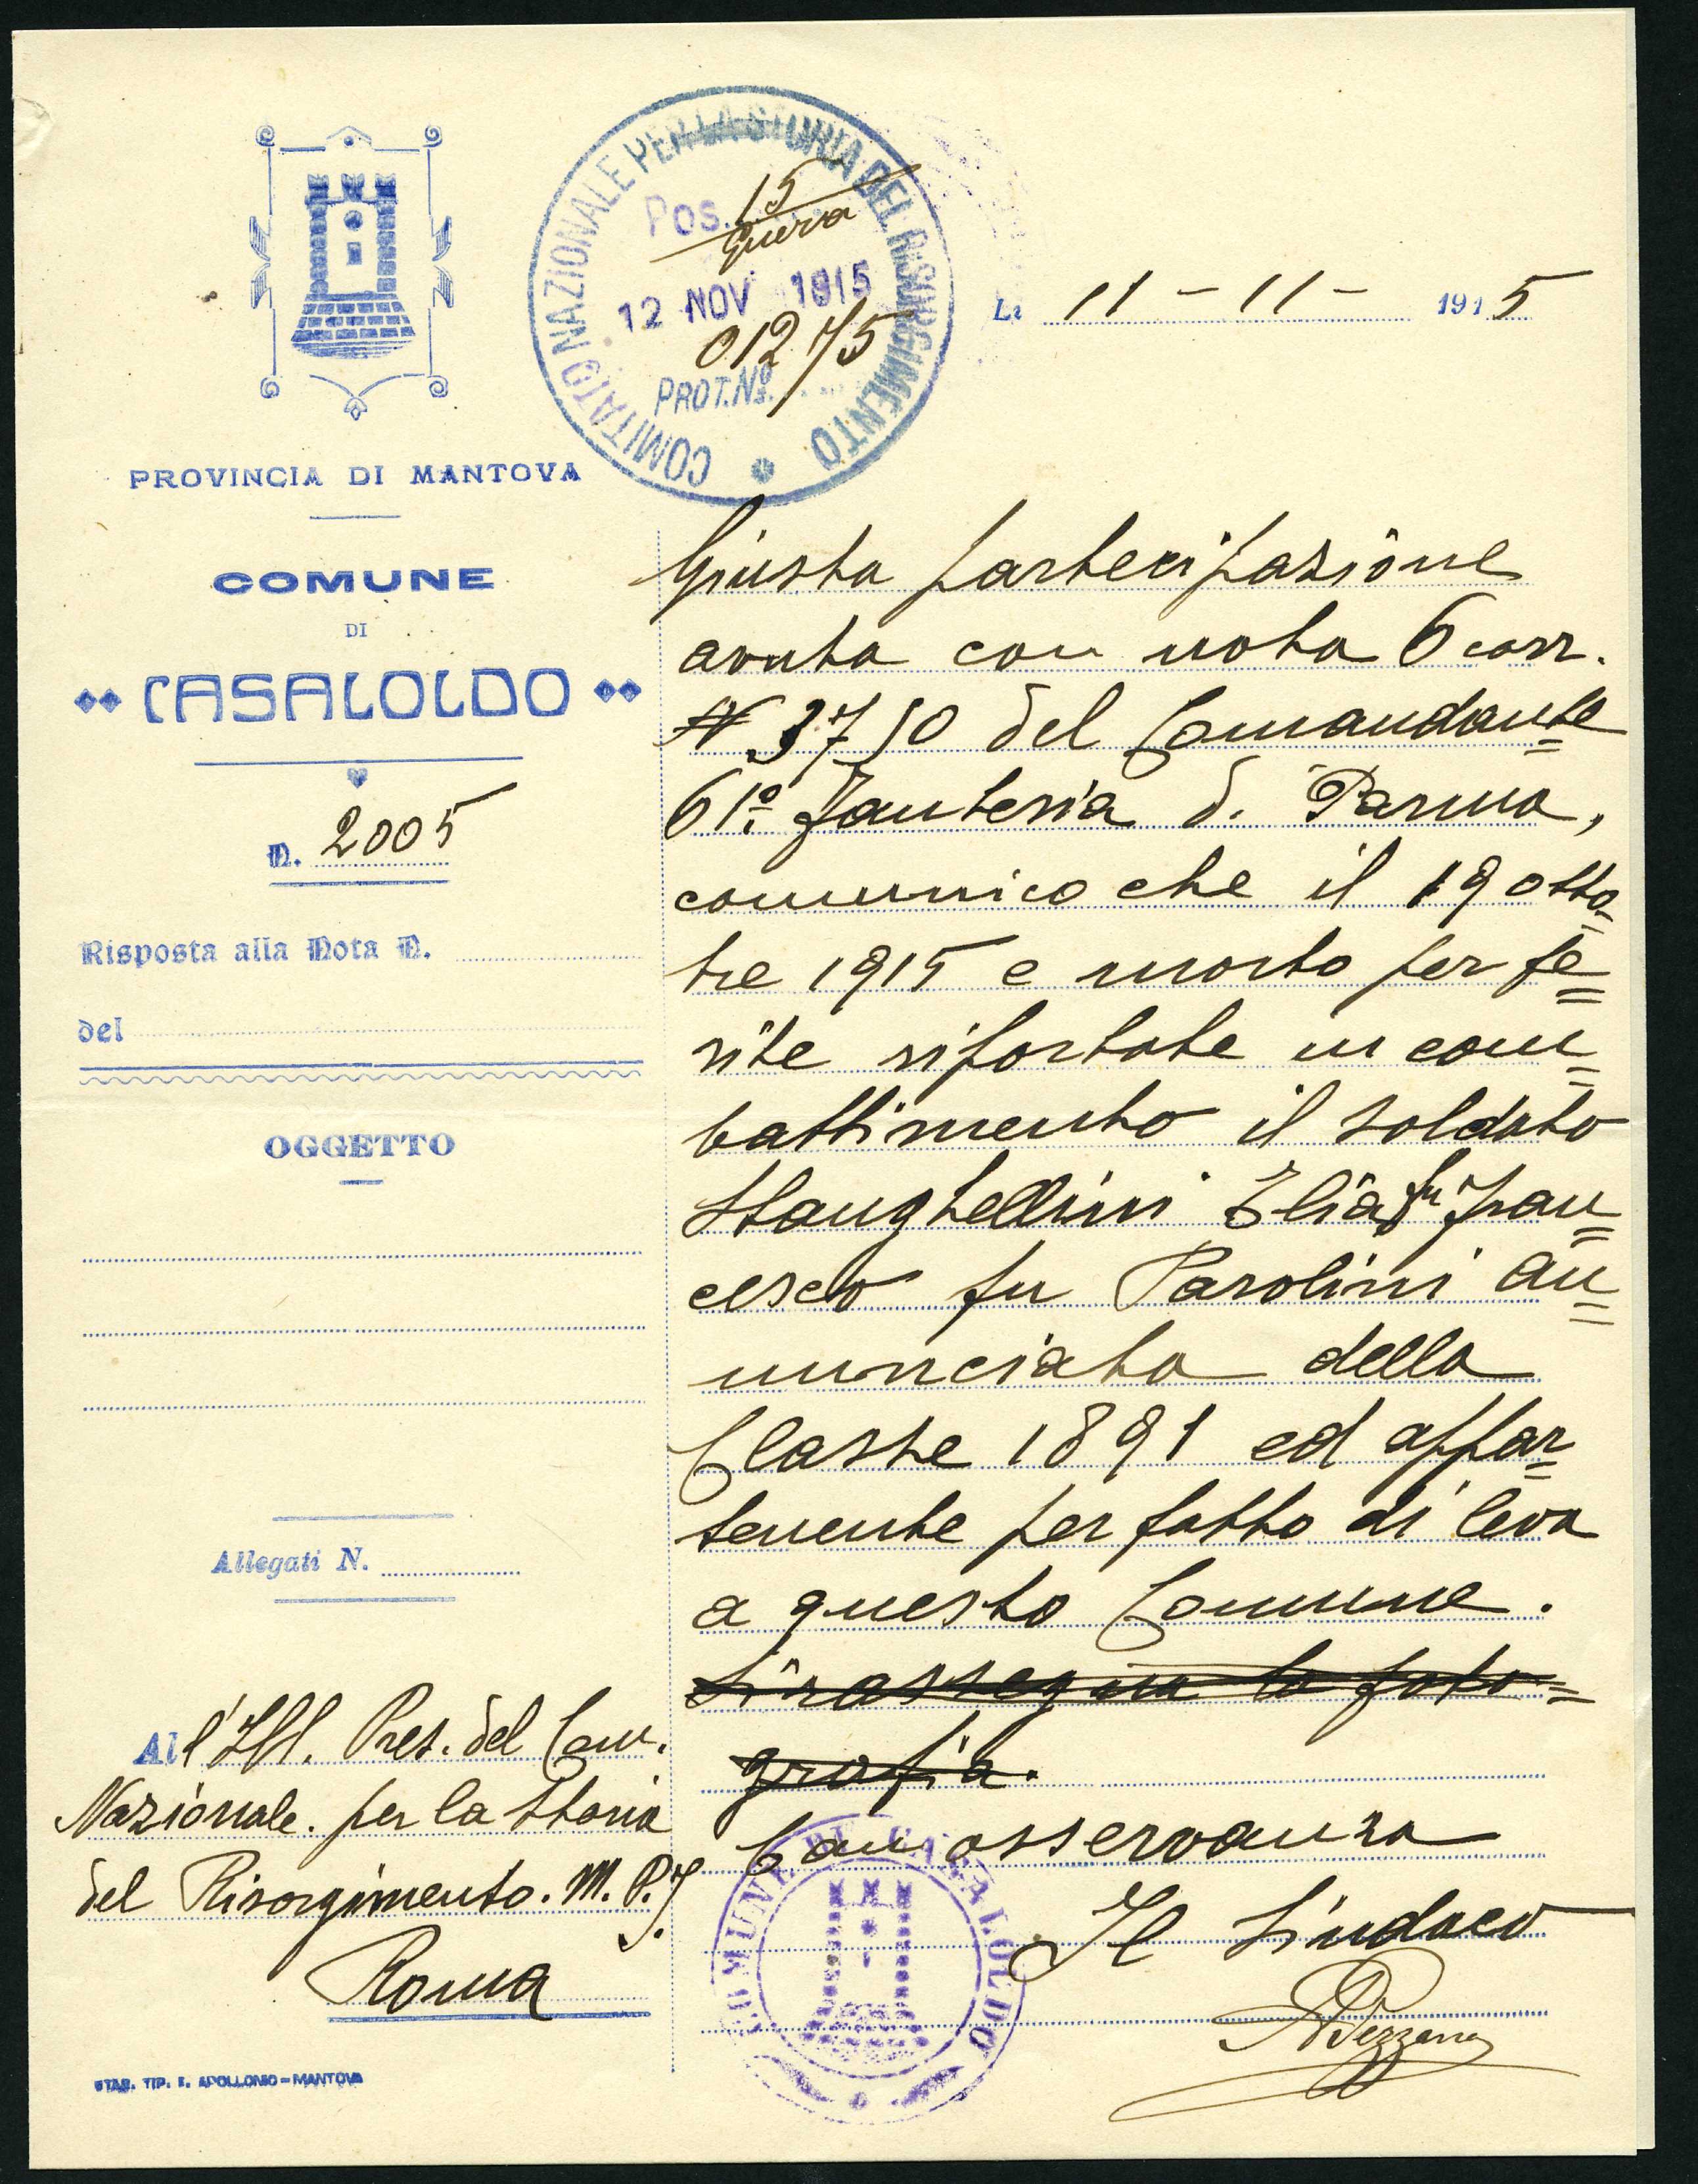 PROVINCIA DI MANTOVA
COMUNE
DI
CASALOLDO
N. 2005
Risposta alla Nota N.
del
OGGETTO
Allegati N.
All'Ill. Pres. del Com.
Nazionale. per la Storia
del Risorgimento. M. P. I.
Roma
STAB. TIP. E. APOLLONIO - MANTOVA
COMITATO NAZIONALE PER LA STORIA DEL RISORGIMENTO
Pos. 15
Guerra
12 NOV 1915
01275
PROT. No.
Li 11 - 11 - 1915
Giusta partecipazione
avuta con nota 6 corr.
N 3750 del Comandante
61º Fanteria d. Parma,
comunico che il 19 otto-
bre 1915 e morto per fe=
rite riportate in com=
battimento il soldato
Stanghellini Elia fu Fran=
cesco fu Parolini An=
nunciata della
Classe 1891 ed appar=
tenente per fatto di leva
a questo Comune.
Si rassegna la foto=
grafia.
Con osservanza
Il Sindaco
COMUNE DI CASALOLDO